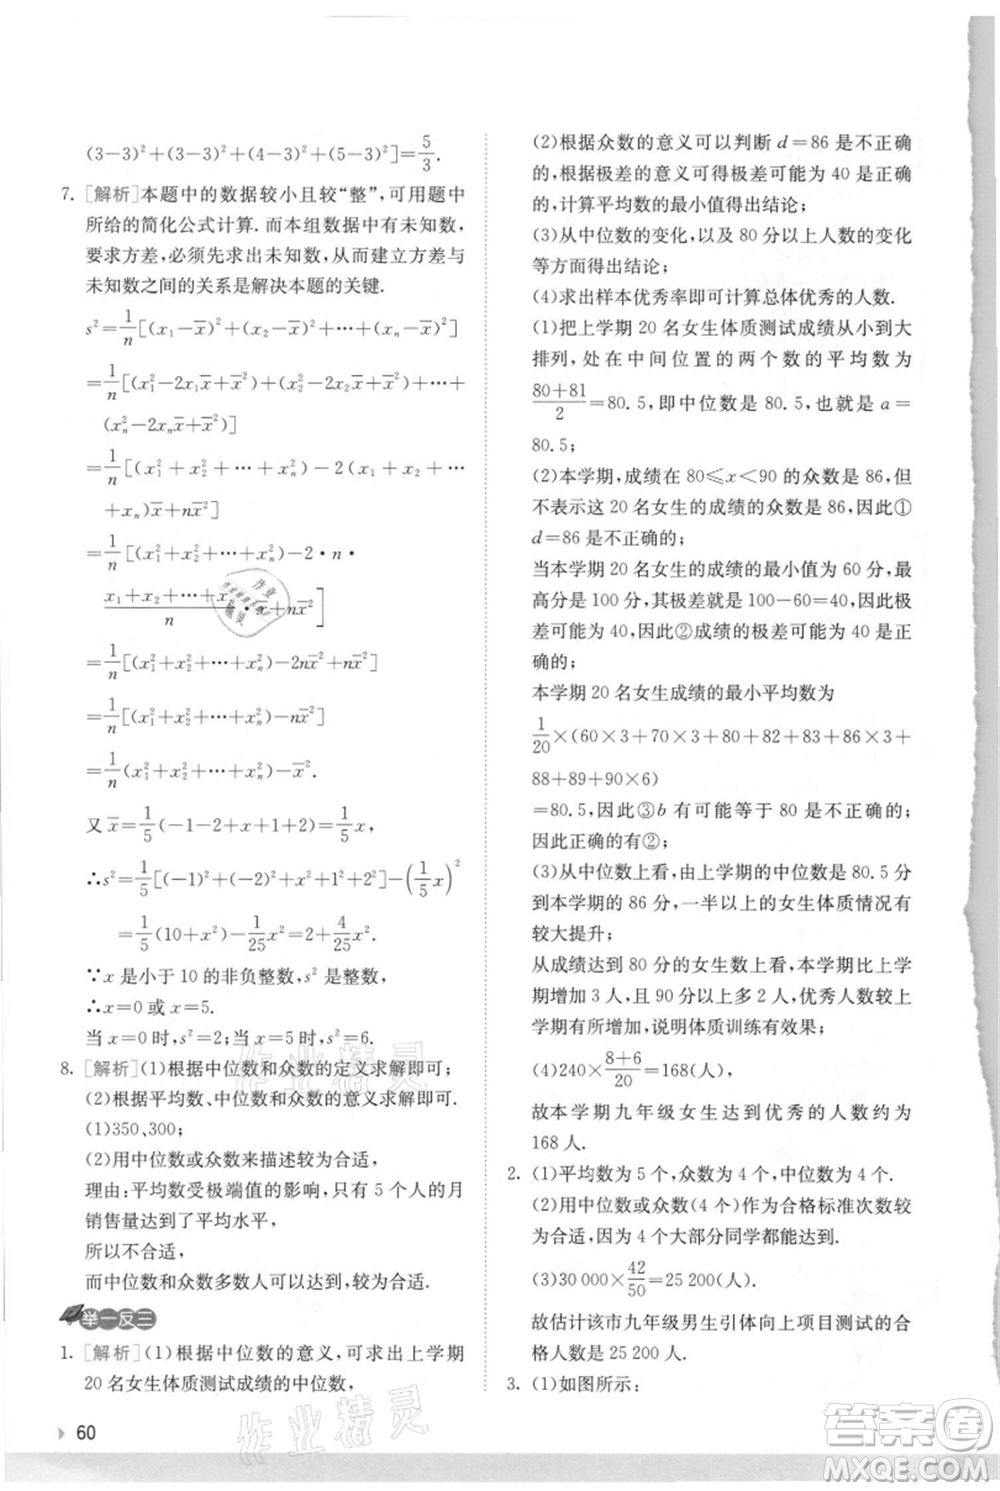 (3-3)²+(3-3)²+(4-3)²+(5-3)²]=5/3.
7. [解析]本题中的数据较小且较“整”,可用题中
所给的简化公式计算. 而本组数据中有未知数,
要求方差,必须先求出未知数,而建立方差与
未知数之间的关系是解决本题的关键.
s²=1/n[(x₁-x̄)²+(x₂-x̄)²+⋯+(xₙ-x̄)²]
=1/n[(x₁²-2x₁x̄+x̄²)+(x₂²-2x₂x̄+x̄²)+⋯+
(xₙ²-2xₙx̄+x̄²)]
=1/n[(x₁²+x₂²+⋯+xₙ²)-2(x₁+x₂+⋯
+xₙ)x̄+nx̄²]
=1/n[(x₁²+x₂²+⋯+xₙ²)-2·n·
(x₁+x₂+⋯+xₙ)/n·x̄+nx̄²]
=1/n[(x₁²+x₂²+⋯+xₙ²)-2nx̄²+nx̄²]
=1/n[(x₁²+x₂²+⋯+xₙ²)-nx̄²]
=1/n(x₁²+x₂²+⋯+xₙ²)-x̄².
又x̄=1/5(-1-2+2+1+x)=1/5x,
∴s²=1/5[(-1)²+(-2)²+x²+1²+2²]-(1/5x)²
=1/5(10+x²)-1/25x²=2+4/25x².
∵x是小于10的非负整数,s²是整数,
∴x=0或x=5.
当x=0时,s²=2;当x=5时,s²=6.
8. [解析](1)根据中位数和众数的定义求解即可;
(2)根据平均数、中位数和众数的意义求解即可.
(1)350、300;
(2)用中位数或众数较为合适,
理由:平均数受极端值的影响,只有5个人的月
销售量达到了平均水平,
所以不合适,
而中位数和众数多数人可以达到,较为合适.
举一反三
1. [解析](1)根据中位数的意义,可求出上学期
20名女生体质测试成绩的中位数,
60
(2)根据众数的意义可以判断d=86是不正确
的,根据极差的意义可得极差可能为40是正确
的,计算平均数的最小值得出结论;
(3)从中位数的变化,以及80分以上人数的变化
等方面得出结论;
(4)求出样本优秀率即可计算总体优秀的人数.
(1)把上学期20名女生体质测试成绩从小到大
排列,处在中间位置的两个数的平均数为
(80+81)/2=80.5,即中位数是80.5,也就是a=
80.5;
(2)本学期,成绩在80≤x<90的众数是86,但
不表示这20名女生的成绩的众数是86,因此①
d=86是不正确的;
当本学期20名女生的成绩的最小值为60分,最
高分是100分,其极差是100-60=40,因此极
差可能为40,因此②成绩的极差可能为40是正
确的;
本学期20名女生成绩的最小平均数为
1/20×(60×3+70×3+80+82+83+86×3+
88+89+90×6)
=80.5,因此③b有可能等于80是不正确的;
因此正确的有②;
(3)从中位数上看,由上学期的中位数是80.5分
到本学期的86分,一半以上的女生体质情况有
较大提升;
从成绩达到80分的女生数上看,本学期比上学
期增加3人,且90分以上多2人,优秀人数较上
学期有所增加,说明体质训练有效果;
(4)240×(8+6)/20=168(人),
故本学期九年级女生达到优秀的人数约为
168人.
2. (1)平均数为5个,众数为4个,中位数为4个.
(2)用中位数或众数(4个)作为合格标准次数较
为合适,因为4个大部分同学都能达到.
(3)30 000×42/50=25 200(人),
故估计该市九年级男生引体向上项目测试的合
格人数是25 200人.
3. (1)如图所示:
作业精灵
作业精灵
答案圈
MXQE.COM